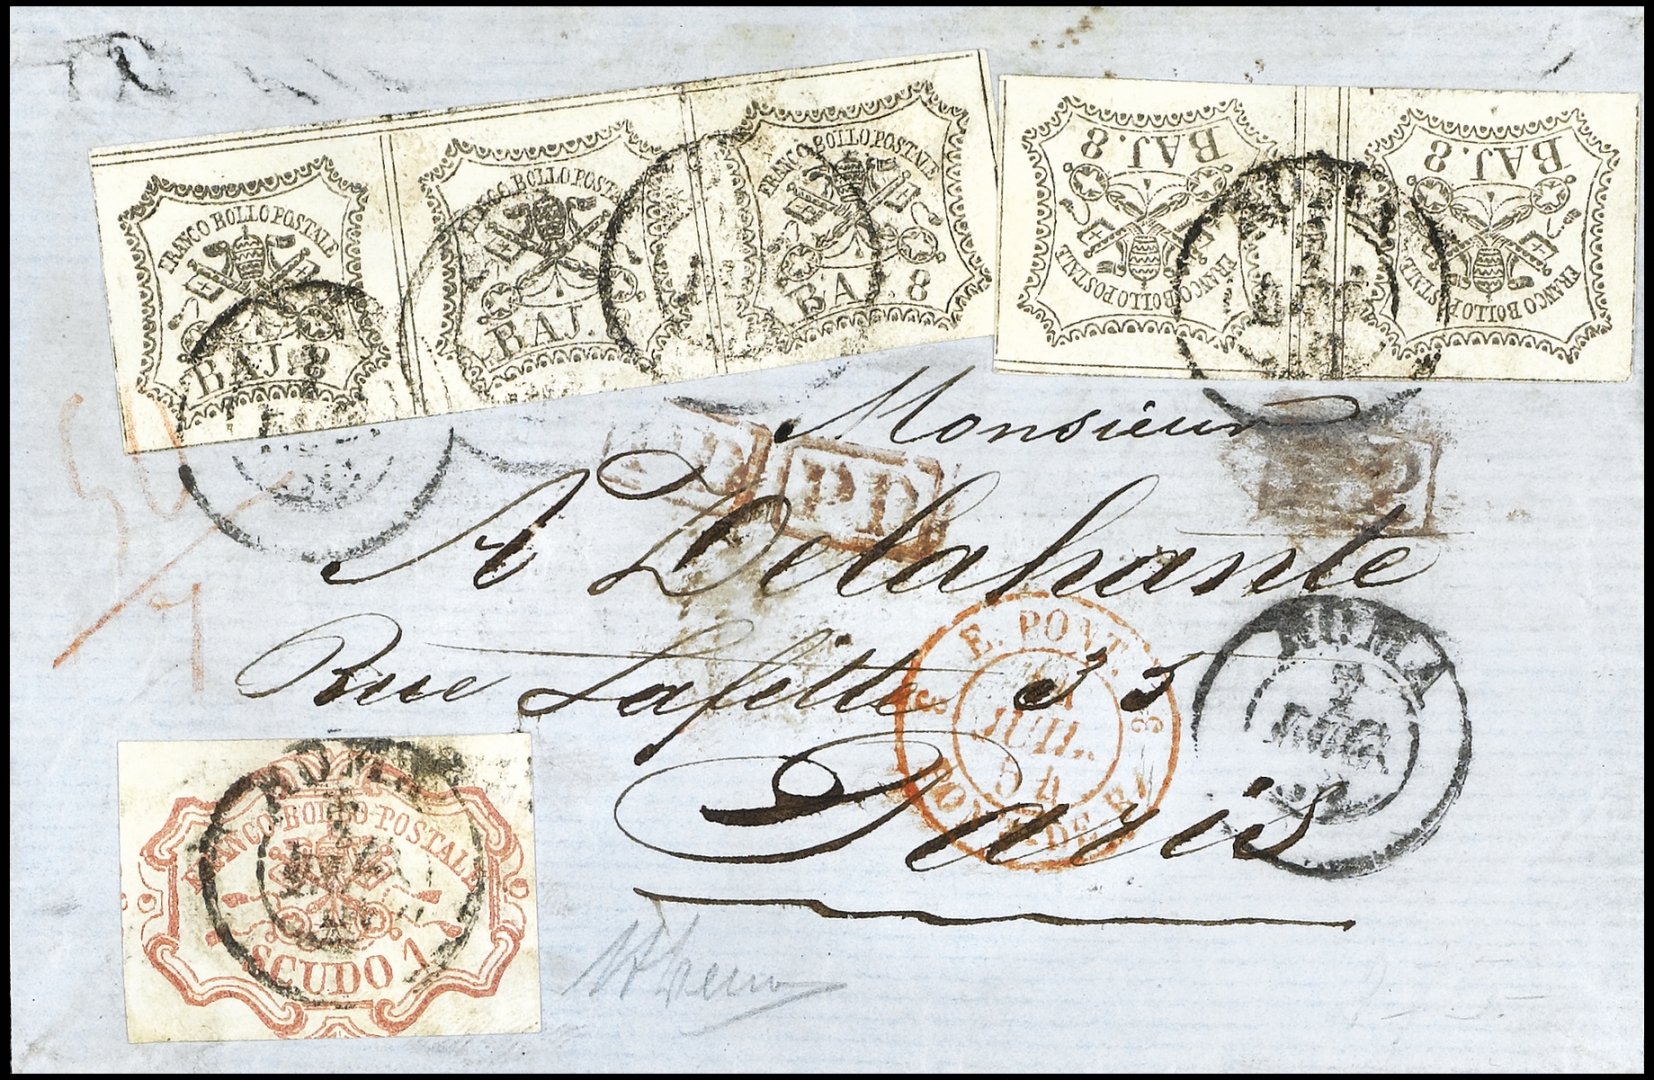 FRANCO BOLLO POSTALE
BAJ. 8
FRANCO BOLLO POSTALE
BAJ.
FRANCO BOLLO POSTALE
BAJ. 8
BAJ. 8
FRANCO BOLLO POSTALE
BAJ. 8
FRANCO BOLLO POSTALE
PD
PD
P
Monsieur
A Delahante
Rue Lafitte 33
Paris
E. PONT
JUIL.
54
FRANCO BOLLO POSTALE
SCUDO 1